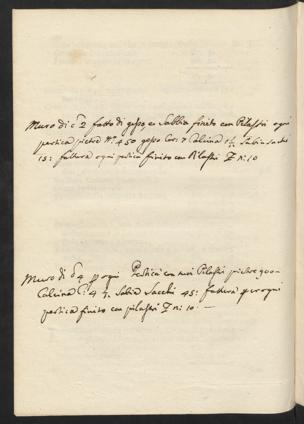 Muro di d 2 fatto di gesso, e Sabbia finito con Pilastri ogni
pertica pietre N.° 450 gesso Cor: 7 Calcina 1½ Sabia sachi
15: fattura ogni pertica finito con Pilastri n: 10
Muro di d 4 p ogni Pertica con suoi Pilastri pietre 900
Calcina C: 4 ½ Sabia Sacchi 45: fattura per ogni
pertica finito con pilastri n: 10